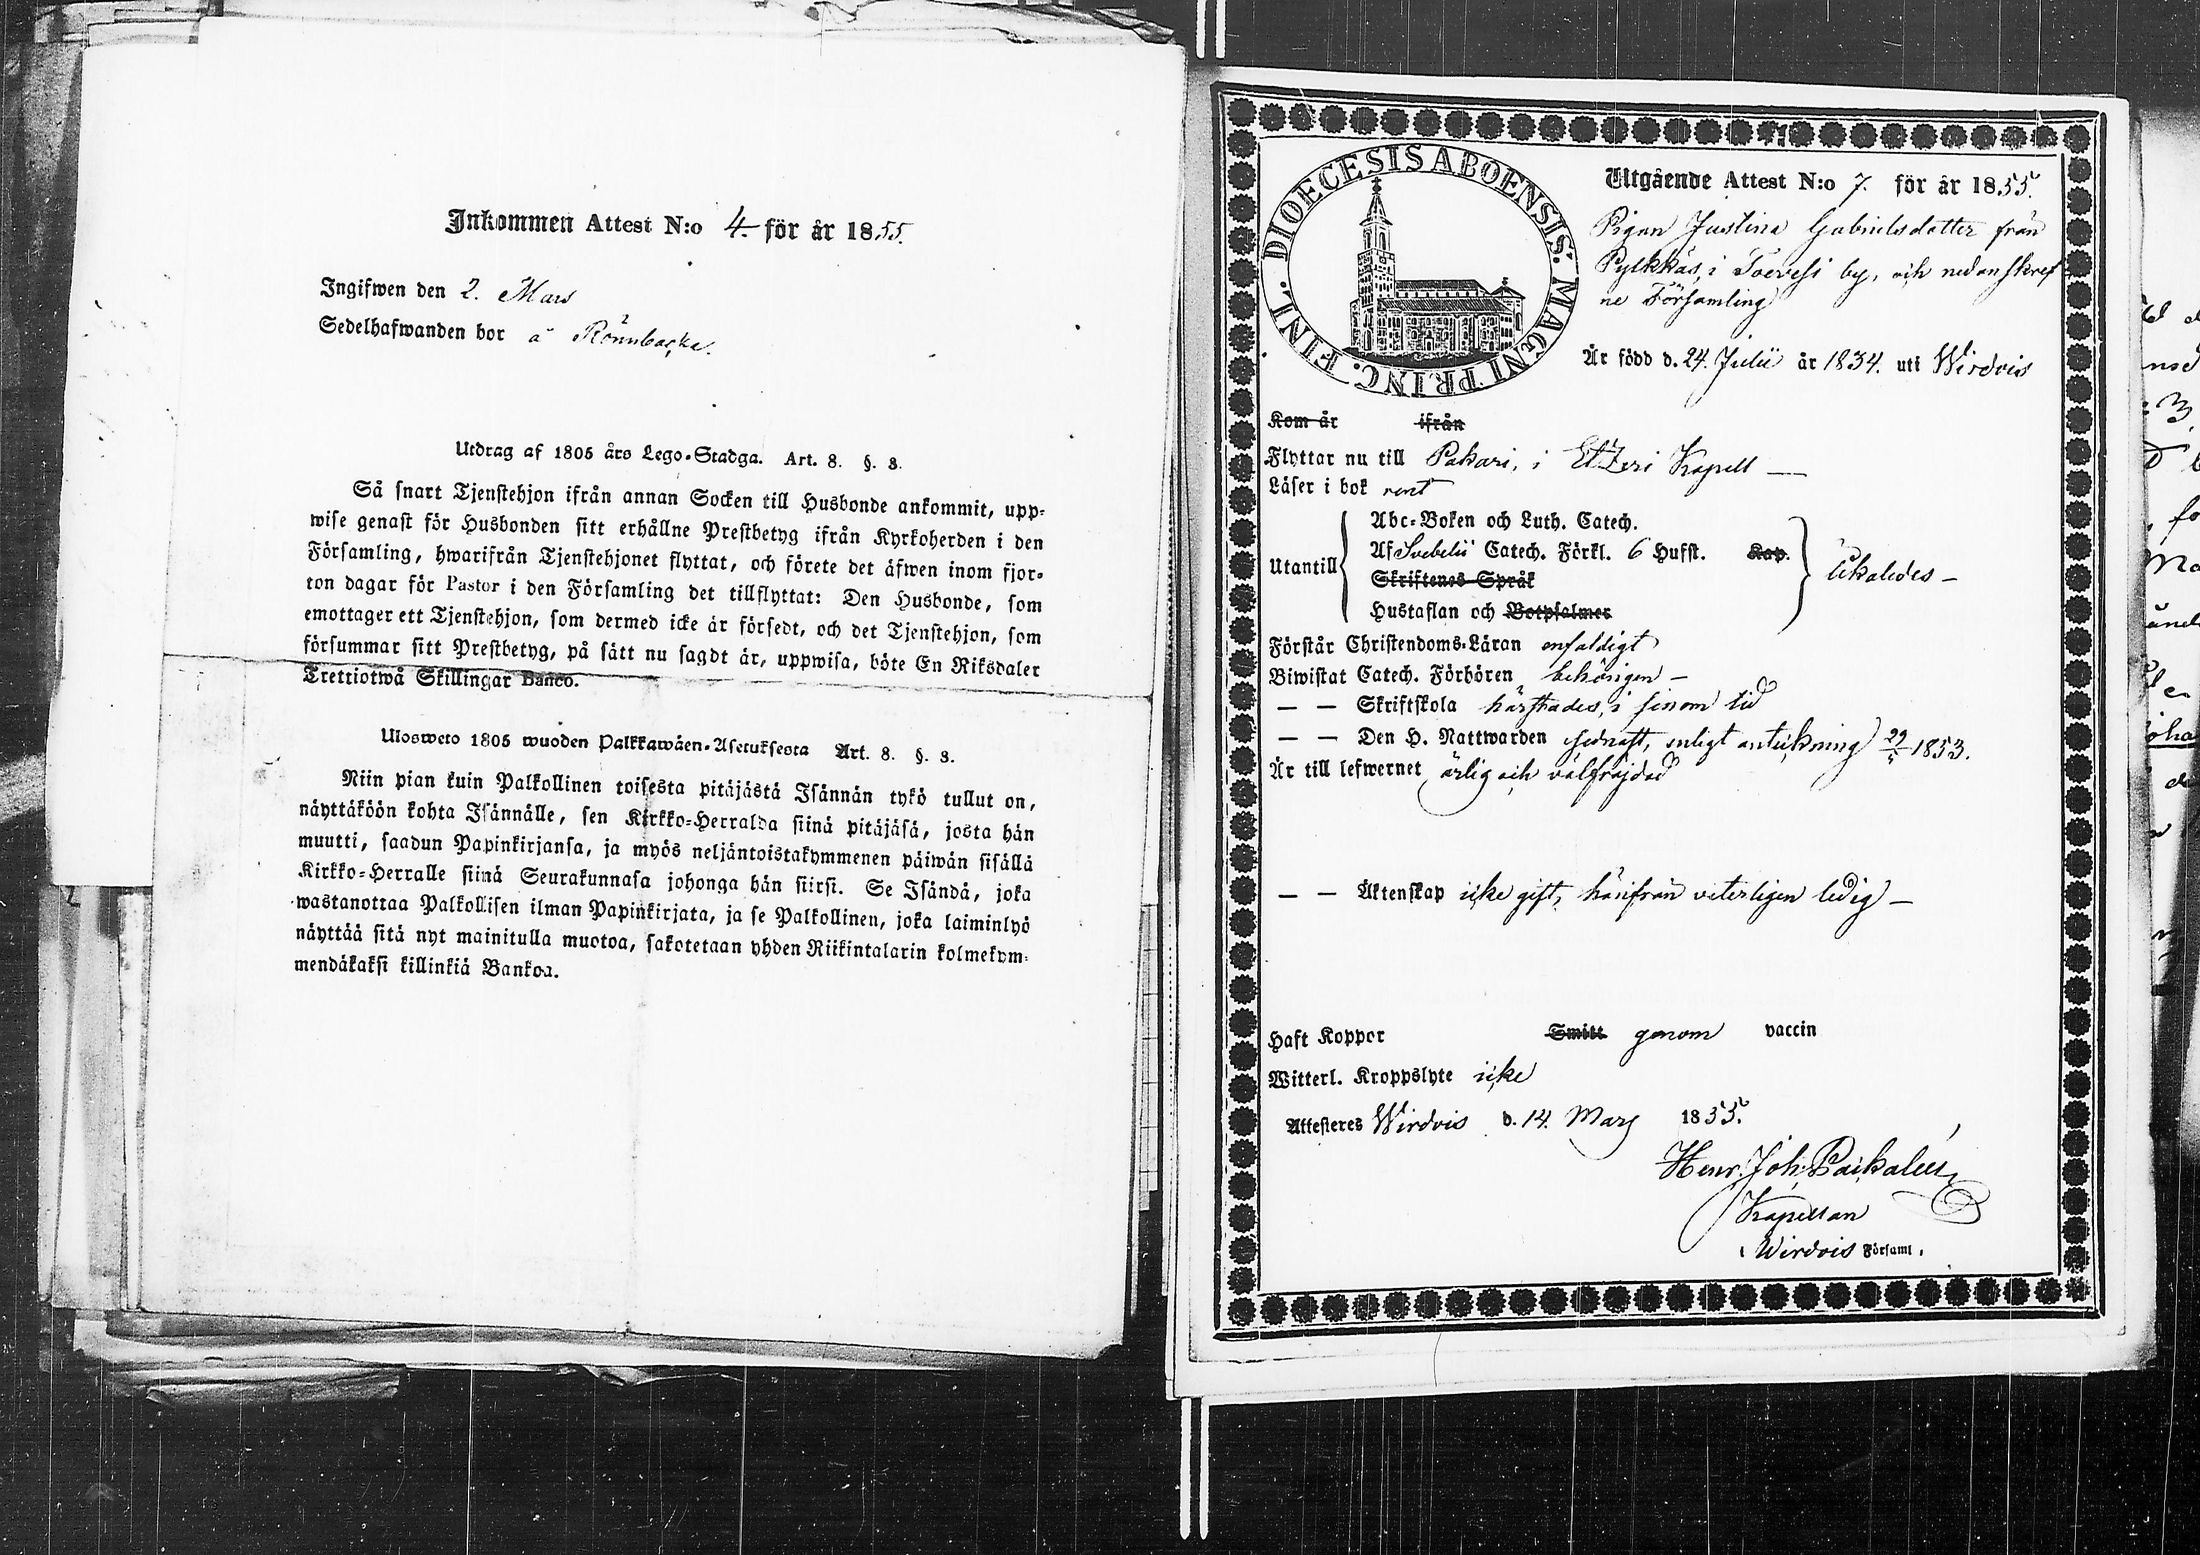 Inkommen Attest N:o 4. för år 1855.
Ingifwen den 2. Mars
Sedelhafwanden bor å Rönnbacka.
Utdrag af 1805 års Lego-Stadga. Art. 8. §. 3.
Så snart Tjenstehjon ifrån annan Socken till Husbonde ankommit, upp-
wise genast för Husbonden sitt erhållne Prestbetyg ifrån Kyrkoherden i den
Församling, hwarifrån Tjenstehjonet flyttat, och förete det äfwen inom fjor-
ton dagar för Pastor i den Församling det tillflyttat: Den Husbonde, som
emottager ett Tjenstehjon, som dermed icke är försedt, och det Tjenstehjon, som
försummar sitt Prestbetyg, på sätt nu sagdt är, uppwisa, böte En Riksdaler
Trettiotwå Skillingar Banco.
Ulosweto 1805 wuoden Palkkawäen-Asetuksesta Art. 8. §. 3.
Niin pian kuin Palkollinen toisesta pitäjästä Isännän tykö tullut on,
näyttäköön kohta Isännälle, sen Kirkko-Herralda siinä pitäjäsä, josta hän
muutti, saadun Papinkirjansa, ja myös neljäntoistakymmenen päiwän sisällä
Kirkko-Herralle siinä Seurakunnasa johonga hän siirsi. Se Isändä, joka
wastanottaa Palkollisen ilman Papinkirjata, ja se Palkollinen, joka laiminlyö
näyttää sitä nyt mainitulla muotoa, sakotetaan yhden Riikintalarin kolmekym-
mendäkaksi killinkiä Bankoa.
DIOECESIS ABOENSIS. MAGNI PRINC. FINL.
Utgående Attest N:o 7. för år 1855.
Pigan Justina Gabrielsdotter från
Pylkkäs, i Toevesi by, och nedanskref-
ne Församling
Är född d. 24. Julii år 1834. uti Wirdois
Kom år ifrån
Flyttar nu till Pakari, i Etzeri Kapell —
Läser i bok rent
Abc-Boken och Luth. Catech.
Utantill Af Svebelii Catech. Förkl. 6 Hufst. Kap. likaledes —
Skriftenes Språk
Hustaflan och Botpsalmer
Förstår Christendoms-Läran enfaldigt
Biwistat Catech. Förhören behörigen —
— — Skriftskola härstädes, i sinom tid
— — Den H. Nattwarden sednast, enligt anteckning 29/5 1853.
Är till lefwernet ärlig och välfräjdad
— — Äktenskap icke gift, härifrån veterligen ledig —
Haft Koppor Smitt genom vaccin
Witterl. Kroppslyte icke
Attesteres Wirdois d. 14. Mars 1855.
Henr. Joh.
Kapellan
i Wirdois Församl.